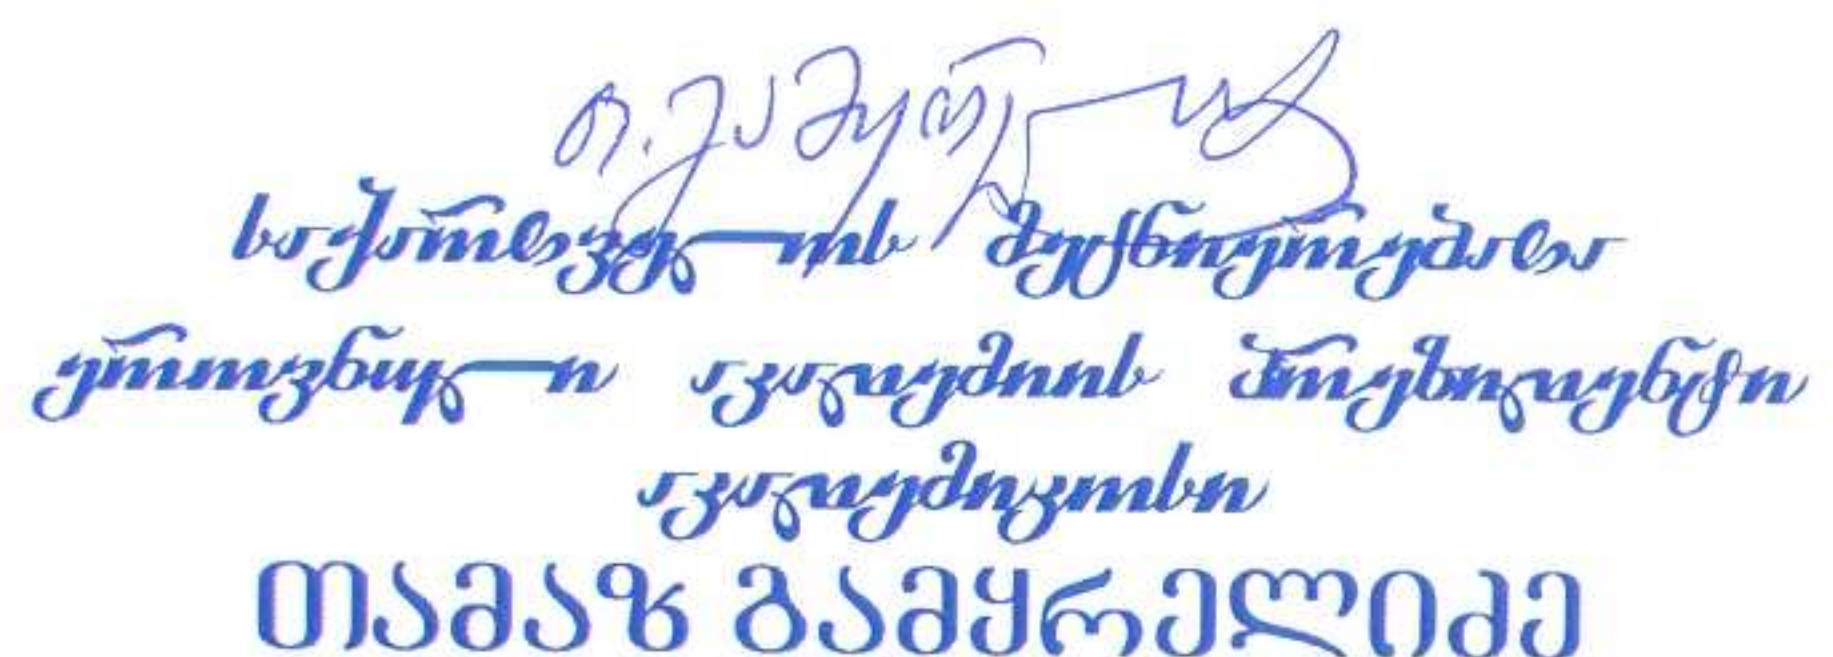 თ. გამყრელიძე
საქართველოს მეცნიერებათა
ეროვნული აკადემიის პრეზიდენტი
აკადემიკოსი
თამაზ გამყრელიძე